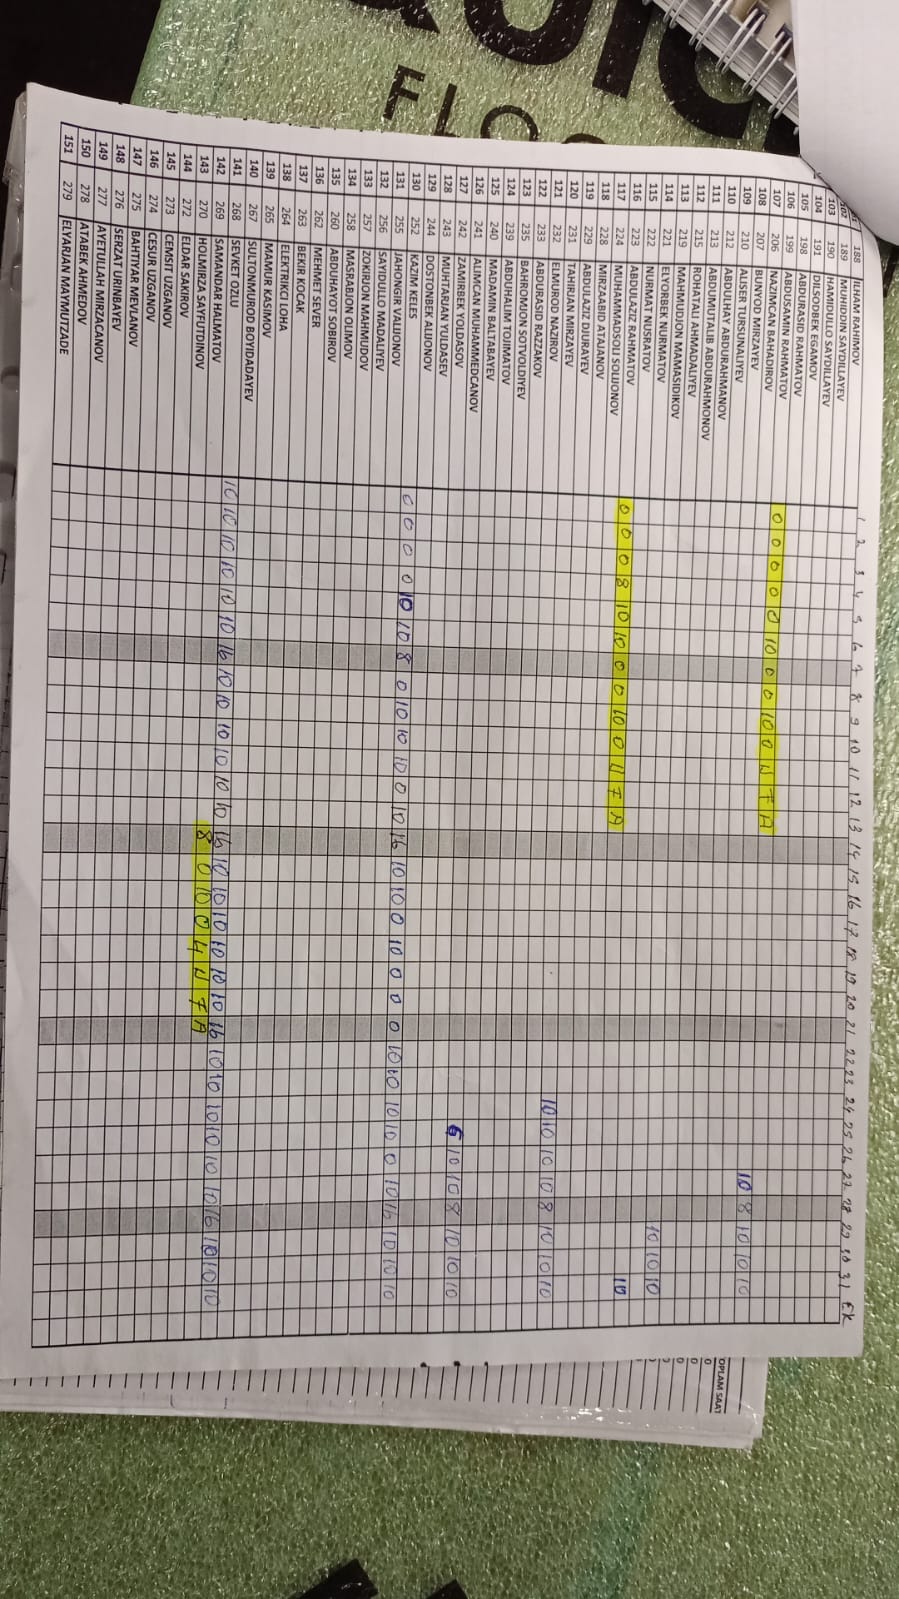 188 ILHAM RAHIMOV 1 2 3 4 5 6 7 8 9 10 11 12 13 14 15 16 17 18 19 20 21 22 23 24 25 26 27 28 29 30 31 EK
102 189 MUHIDDIN SAYDILLAYEV
103 190 HAMIDULLO SAYDILLAYEV
104 191 DILSODBEK EGAMOV
105 198 ABDURASID RAHMATOV
106 199 ABDUSAMIN RAHMATOV
107 206 NAZIMCAN BAHADIROV 0 0 0 0 0 10 0 0 10 0 U F A
108 207 BUNYOD MIRZAYEV
109 210 ALISER TURSUNALIYEV 10 8 10 10 10
110 212 ABDULHAY ABDURAHMANOV
111 213 ABDUMUTALIB ABDURAHMONOV
112 215 ROHATALI AHMADALIYEV
113 219 MAHMUDJON MAMASIDIKOV
114 221 ELYORBEK NURMATOV
115 222 NURMAT NUSRATOV 10 10 10
116 223 ABDULAZIZ RAHMATOV
117 224 MUHAMMADSOLI SOLIJONOV 0 0 0 8 10 10 0 0 10 0 U F A 10
118 228 MIRZAABID ATAJANOV
119 229 ABDULAZIZ DJURAYEV
120 231 TAHIRJAN MIRZAYEV
121 232 ELMUROD NAZIROV 10 10 10 10 8 10 10 10
122 233 ABDURASID RAZZAKOV
123 235 BAHROMJON SOTVOLDIYEV
124 239 ABDUHALIM TOJIMATOV
125 240 MADAMIN BALTABAYEV
126 241 ALIMCAN MUHAMMEDCANOV
127 242 ZAMIRBEK YOLDASOV 6 10 10 8 10 10 10
128 243 MUHTARJAN YULDASEV
129 244 DOSTONBEK ALIJONOV
130 252 KAZIM KELES
131 255 JAHONGIR VALIJONOV 0 0 0 0 10 10 8 0 10 10 10 0 10 16 10 10 0 10 0 0 0 10 10 10 10 0 10 16 10 10 10
132 256 SAYIDULLO MADALIYEV
133 257 ZOKIRJON MAHMUDOV
134 258 MASRABJON OLIMOV
135 260 ABDUHAYOT SOBIROV
136 262 MEHMET SEVER
137 263 BEKIR KOCAK
138 264 ELEKTRIKCI LOHA
139 265 MAMUR KASIMOV
140 267 SULTONMUROD BOYIDADAYEV
141 268 SEVKET OZLU
142 269 SAMANDAR HALMATOV 10 10 10 10 10 10 16 10 10 10 10 10 10 16 10 10 10 10 10 10 16 10 10 10 10 10 10 16 10 10 10
143 270 HOLMIRZA SAYFUTDINOV 8 0 10 0 4 U F A
144 272 ELDAR SAKIROV
145 273 CEMSIT UZGANOV
146 274 CESUR UZGANOV
147 275 BAHTIYAR MEVLANOV
148 276 SERZAT URINBAYEV
149 277 AYETULLAH MIRZACANOV
150 278 ATABEK AHMEDOV
151 279 ELYARJAN MAYMUTZADE
OPLAM SAAT